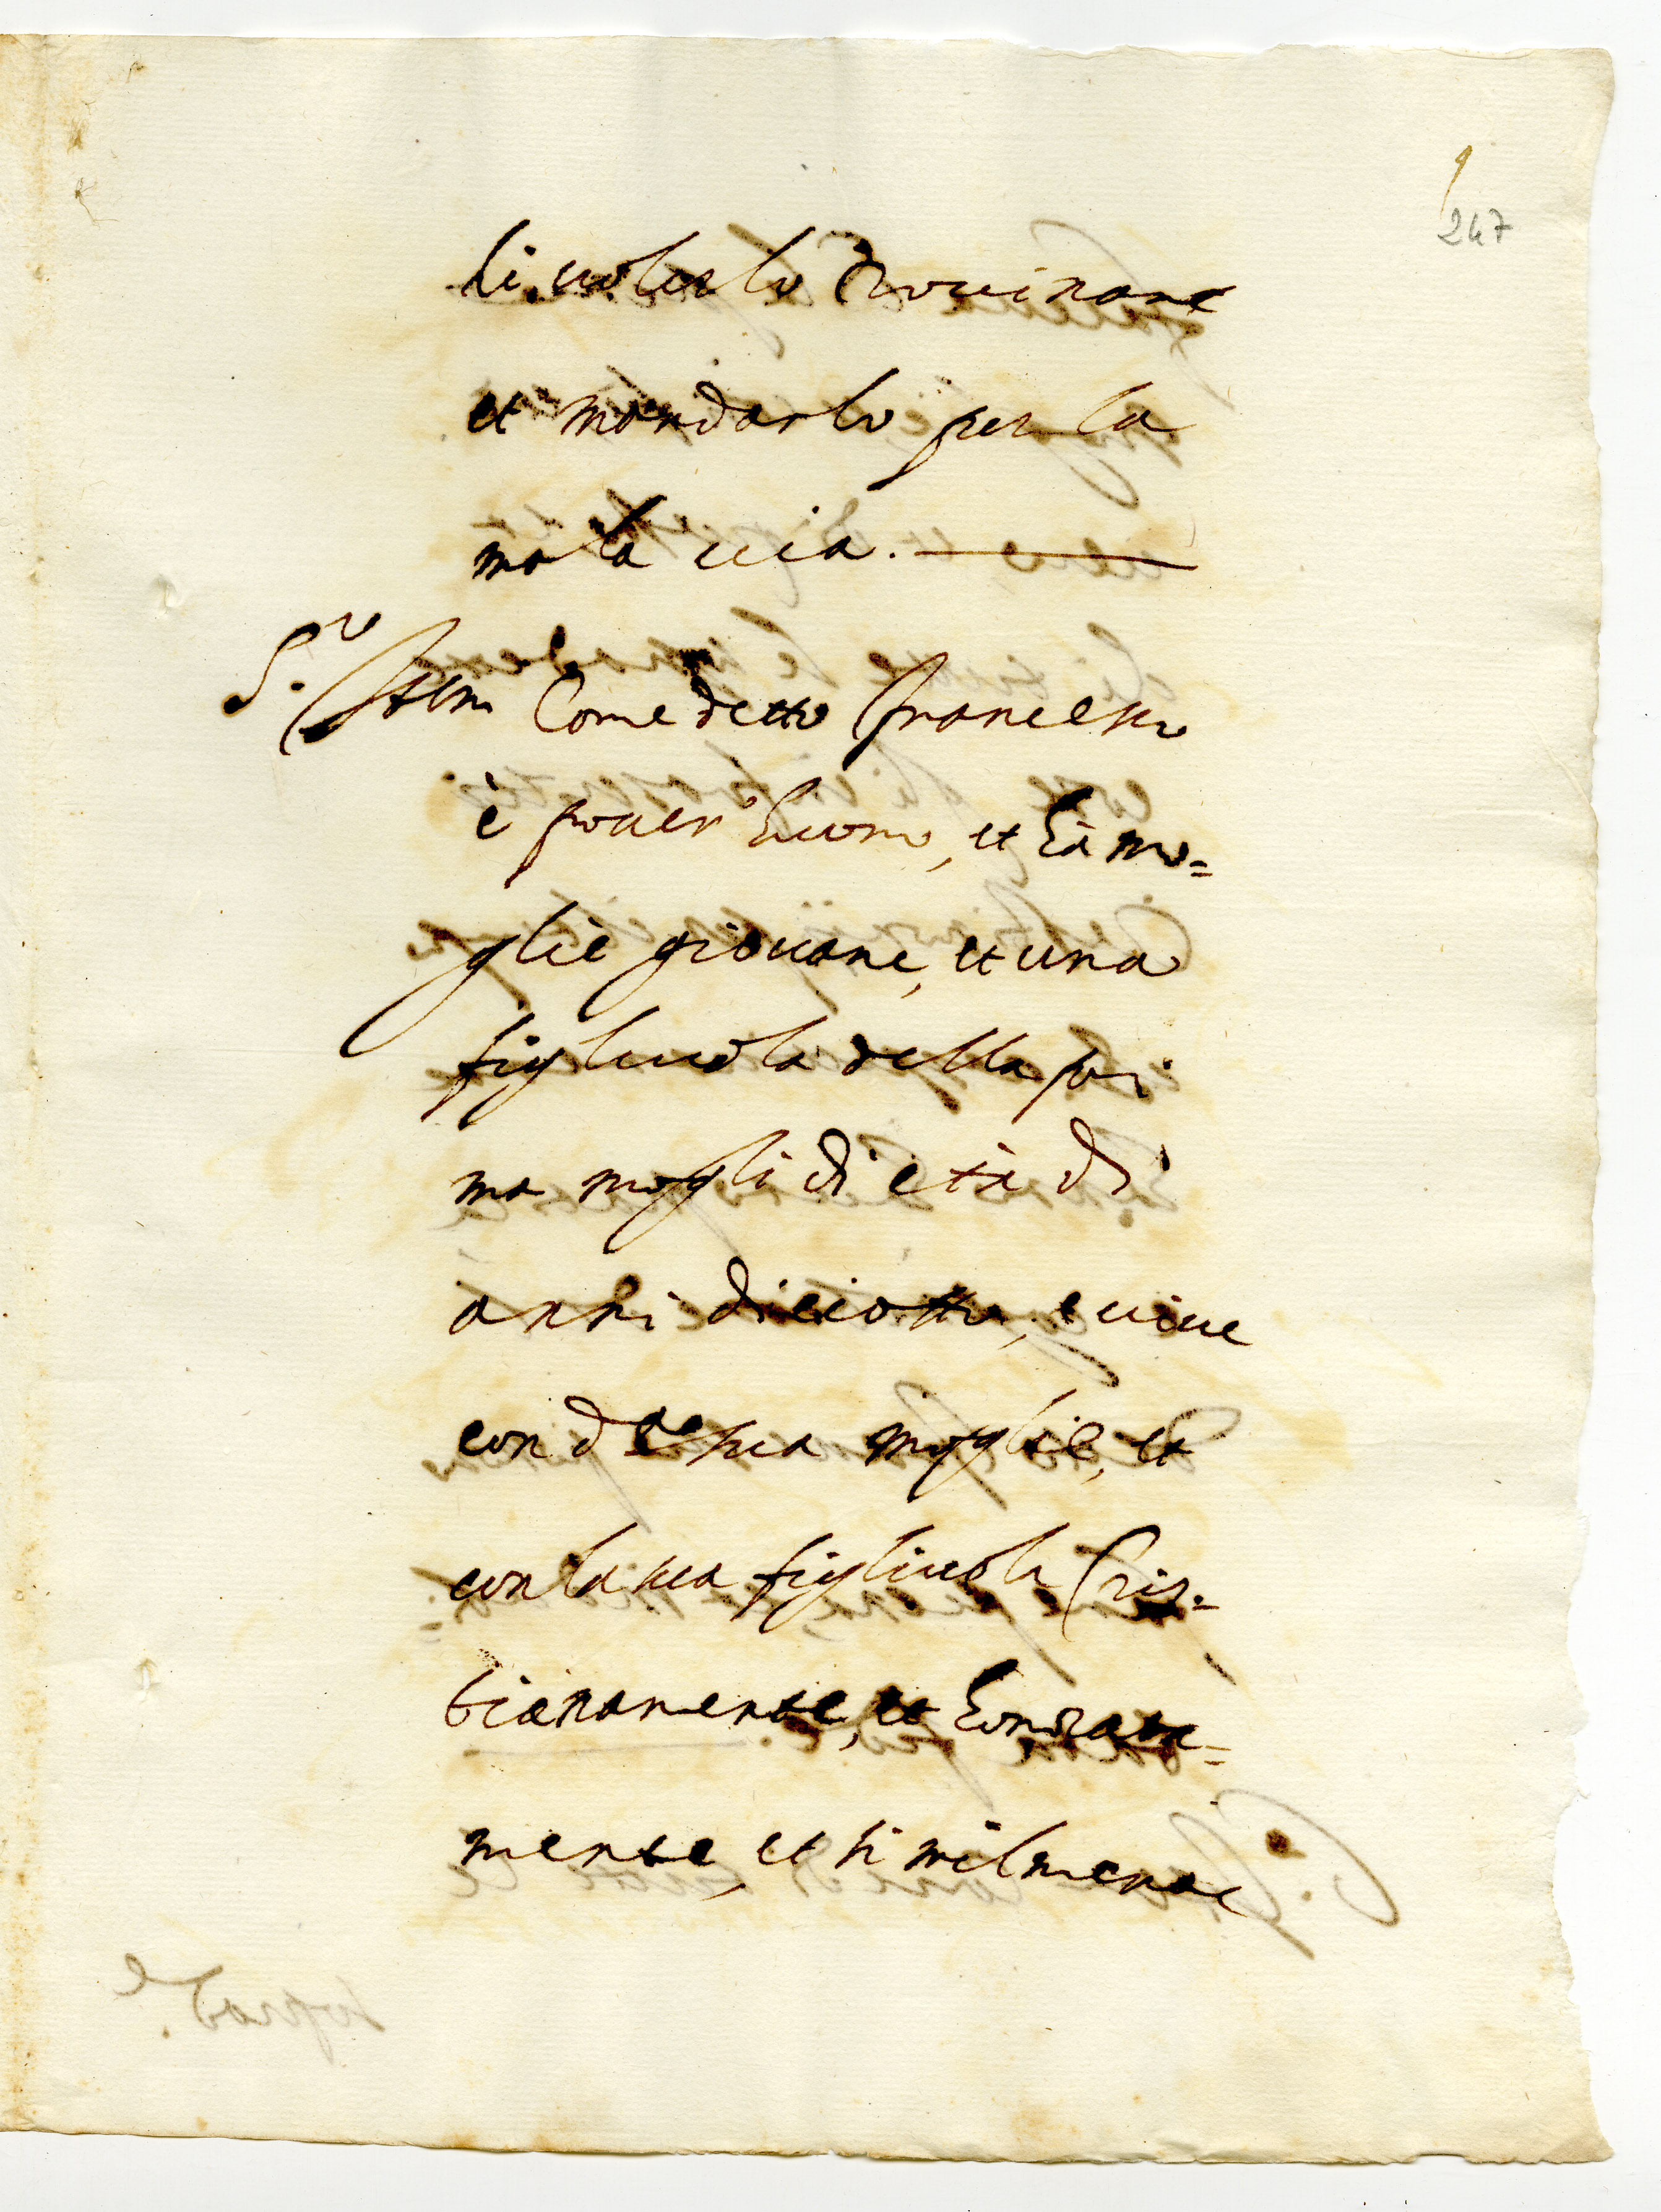 247
di volerlo rovinare
et mandarlo per la
mala via.
5.º Item Come detto Francesco
è pover' huomo, et hà mo=
glie giovane, et una
figliuola della pri
ma mogli di età di
anni dieiotto, e vive
con d.ª sua moglie, et
con la sua figliuola Cris-
tianamente, et honorata=
mente, et similmente